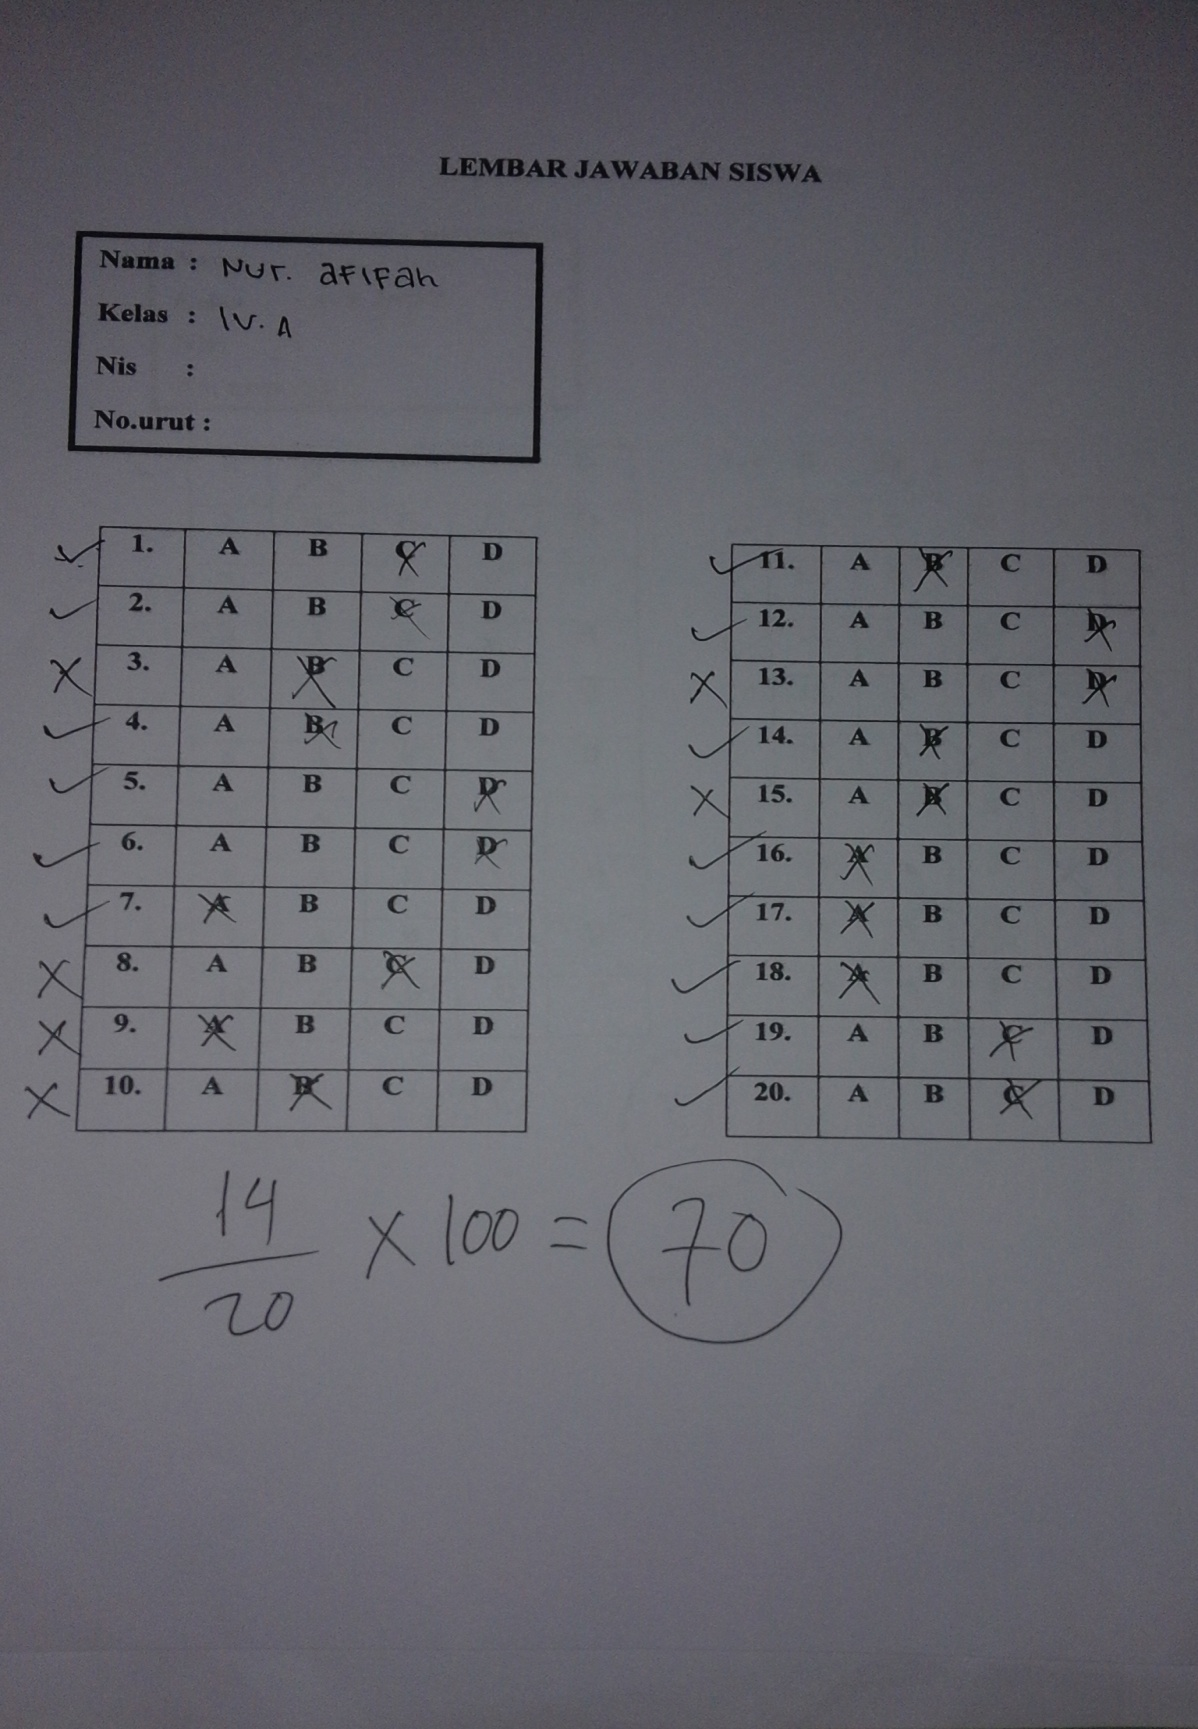 LEMBAR JAWABAN SISWA
Nama : Nur. afifah
Kelas : IV. A
Nis :
No.urut :
1. A B C D
2. A B C D
3. A B C D
4. A B C D
5. A B C D
6. A B C D
7. A B C D
8. A B C D
9. A B C D
10. A B C D
11. A B C D
12. A B C D
13. A B C D
14. A B C D
15. A B C D
16. A B C D
17. A B C D
18. A B C D
19. A B C D
20. A B C D
14/20 x 100 = 70